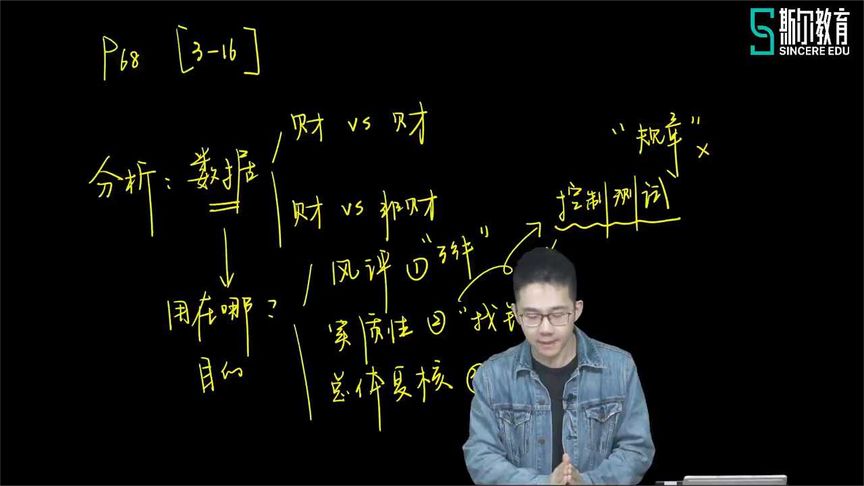 斯尔教育
SINCERE EDU
P68 [3-16]
财 vs 财
"规章" ×
分析：数据
财 vs 非财
控制测试
风评 ① "强"
用在哪？
实质性 ② "找
目的
总体复核